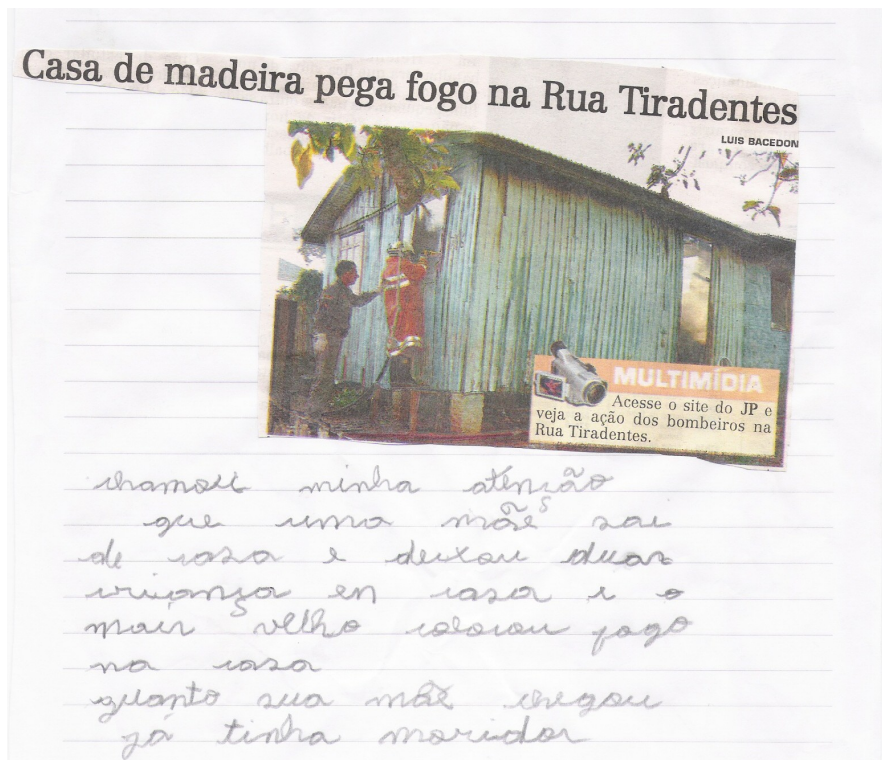 Casa de madeira pega fogo na Rua Tiradentes
LUIS BACEDON
MULTIMÍDIA
Acesse o site do JP e
veja a ação dos bombeiros na
Rua Tiradentes.
chamou minha atenção
que uma mãe sai
de casa e deixou duas
criança en casa e o
mais velho colocou fogo
na casa
quanto sua mãe chegou
já tinha moridor